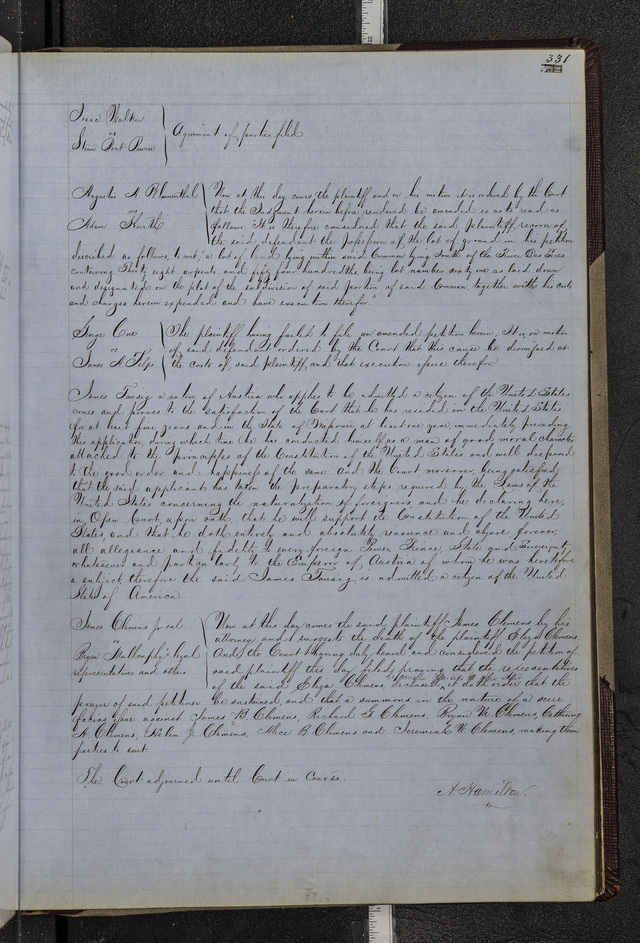 331
Isaac Walker
vs
Steam Boat
Agreement of parties filed
Augustus A. Blumenthal
vs
Adam Keith
Now at this day comes the plaintiff and on his motion it is ordered by the Court
that the Judgment herein before rendered be amended so as to read as
follows It is therefore considered that the said plaintiff recover of
the said defendant the possession of the lot of ground in his petition
described as follows, to wit, "a lot of land lying within said Common lying South of the River Des Peres
containing Thirty eight arpents and four hundredths, being lot number sixty one as laid down
and designated on the plat of the subdivision of said portion of said Common, together with his costs
and charges herein expended and have execution therefor."
George Coe
vs
James A.
The plaintiff having failed to file an amended petition herein, It is on motion
of said defendant ordered by the Court that this cause be dismissed at
the costs of said plaintiff, and that execution issue therefor
James Tausig a native of Austria who applies to be admitted a citizen of the United States
comes and proves to the satisfaction of the Court that he has resided in the United States
for at least five years and in the State of Missouri at least one year, immediately preceding
this application, during which time he has conducted himself as a man of good moral character
attached to the principles of the Constitution of the United States and well disposed
to the good order and happiness of the same And the Court moreover, being satisfied
that the said applicant has taken the preparatory steps required by the Laws of the
United States concerning the naturalization of foreigners and he declaring here,
in Open Court, upon oath, that he will support the Constitution of the United
States, and that he doth entirely and absolutely renounce and abjure forever
all allegiance and fidelity to every foreign Power, Prince, State and Sovereignty
whatsoever and particularly to the Emperor of Austria of whom he was heretofore
a subject, therefore the said James Tausig is admitted a citizen of the United
States of America
James Clemens Jr et al
vs
Bryan Mullanphy's legal
representatives and others
Now at this day comes the said plaintiff James Clemens by his
attorney and suggests the death of the plaintiff Eliza Clemens
And the Court having duly heard and considered the petition of
said plaintiff this day filed, praying that the representatives
of the said Eliza Clemens, deceased, be made parties to this suit, it doth order that the
prayer of said petitioner be sustained, and that a summons in the nature of a scire
facias issue against James B. Clemens, Richard G. Clemens, Bryan M. Clemens, Catherine
A. Clemens, Helen J. Clemens, Alice B. Clemens and Jeremiah W. Clemens, making them
parties to suit.
The Court adjourned until Court in Course.
A. Hamilton